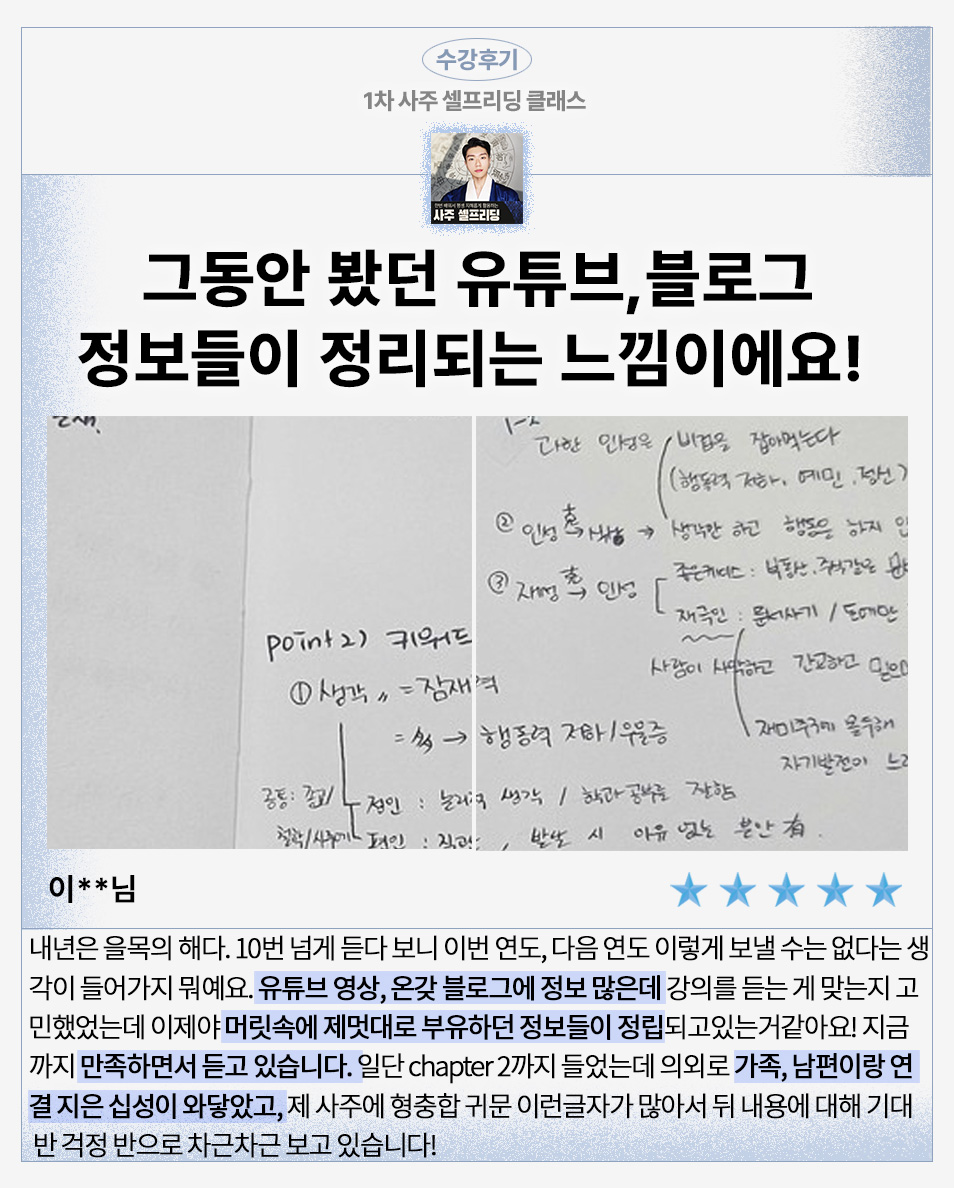 수강후기
1차 사주 셀프리딩 클래스
사주 셀프리딩
그동안 봤던 유튜브,블로그
정보들이 정리되는 느낌이에요!
과한 인성은 비겁을 잡아먹는다
(행동력 저하, 예민, 정신)
② 인성 克→ 식상 → 생각만 하고 행동은 하지
③ 재성 克→ 인성
좋은케이스 : 부동산, 주식같은
재극인 : 문서사기 / 돈에만
사람이 삭막하고 간교하고
재미추구에 몰두해
자기발전이
point 2) 키워드
① 생각 〃 = 잠재력
= 多 → 행동력 저하/우울증
공통: 종교/
철학/사주기
정인 : 논리적 생각 / 학과공부를 잘함
편인 : 직관, 발달 시 이유 없는 불안 有.
이**님
내년은 을목의 해다. 10번 넘게 듣다 보니 이번 연도, 다음 연도 이렇게 보낼 수는 없다는 생
각이 들어가지 뭐예요. 유튜브 영상, 온갖 블로그에 정보 많은데 강의를 듣는 게 맞는지 고
민했었는데 이제야 머릿속에 제멋대로 부유하던 정보들이 정립되고있는거같아요! 지금
까지 만족하면서 듣고 있습니다. 일단 chapter 2까지 들었는데 의외로 가족, 남편이랑 연
결 지은 십성이 와닿았고, 제 사주에 형충합 귀문 이런글자가 많아서 뒤 내용에 대해 기대
반 걱정 반으로 차근차근 보고 있습니다!